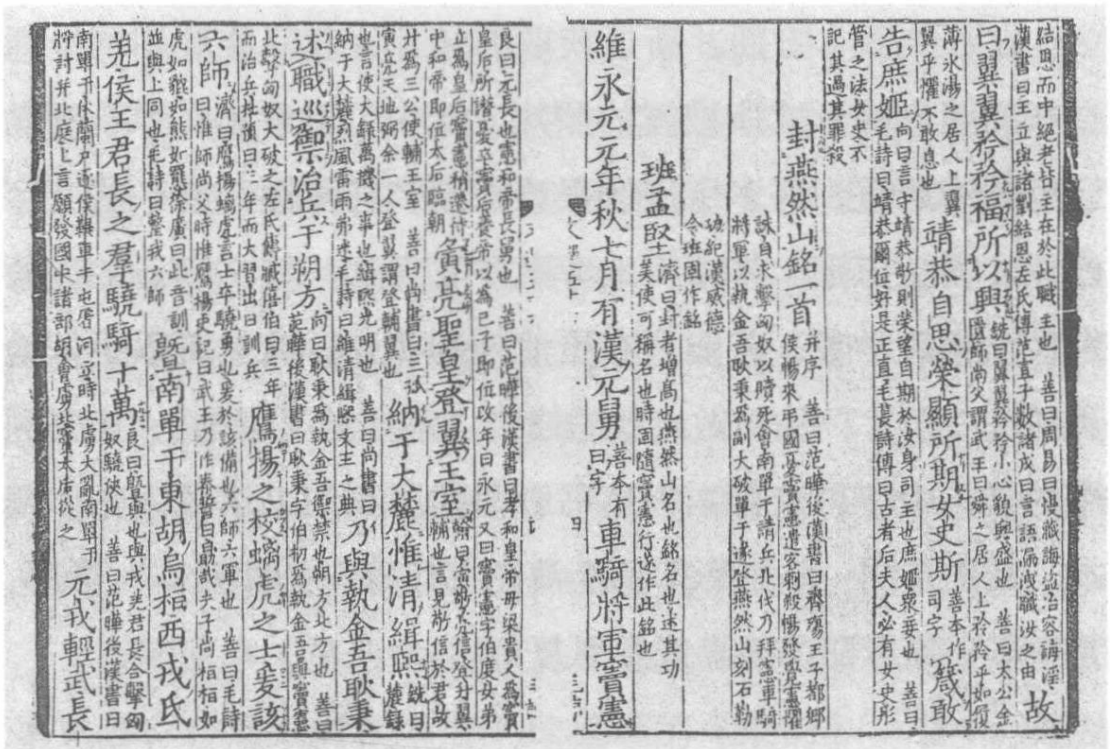 結恩而中絕者主在於此職主也 善曰周易曰慢藏誨盜冶容誨淫
漢書曰王立與諸劉結恩左氏傳范宣子數諸戎曰言語漏洩職汝之由
故
曰翼翼矜矜福所以興
銑曰翼翼矜矜小心貌興盛也 善曰太公金
匱師尚父謂武王曰舜之居人上矜矜乎如履
薄氷湯之居人上翼
翼乎懼不敢息也
靖恭自思榮顯所期女史斯
善本作
司字
箴敢
告庶姬
向曰言守靖恭則榮望自期於汝身司主也庶姬衆妾也 善曰
毛詩曰靖恭爾位好是正直毛萇詩傳曰古者后夫人必有女史彤
管之法女史不
記其過其罪殺
封燕然山銘一首
并序 善曰范曄後漢書曰齊殤王子都鄉
侯暢來弔國憂竇憲遣客刺殺暢發覺憲懼
誅自求擊匈奴以贖死會南單于請兵北伐乃拜憲車騎
將軍以執金吾耿秉爲副大破單于遂登燕然山刻石勒
功紀漢威德
令班固作銘
班孟堅
濟曰封者增髙也燕然山名也銘名也述其功
美使可稱名也時固隨竇憲行遂作此銘也
維永元元年秋七月有漢元舅
善本有
曰字
車騎將軍竇憲
良曰元長也憲和帝長舅也 善曰范曄後漢書曰孝和皇帝母梁貴人爲竇
皇后所譖憂卒竇后養帝以為己子即位改年曰永元又曰竇憲字伯度女弟
立爲皇后竇憲稍遷侍
中和帝即位太后臨朝
寅亮聖皇登翼王室
翰曰寅敬亮信登升翼
輔也言見敬信於君故
升爲三公使輔王室 善曰尚書曰三孤
寅亮天地弼余一人登翼謂登輔翼也
納于大麓惟清緝熙
銑曰
麓録
也言使大録萬機之事也緝熙光明也 善曰尚書曰
納于大麓烈風雷雨弗迷毛詩曰維清緝熙文王之典
乃與執金吾耿秉
述職巡禦治兵于朔方
向曰耿秉爲執金吾禦禁也朔方北方也 善曰
范曄後漢書曰耿秉字伯初爲執金吾與竇憲
北擊匈奴大破之左氏傳臧僖伯曰三年
而治兵杜預曰三年而大習出曰訓兵
鷹揚之校螭虎之士爰該
六師
濟曰鷹揚螭虎言士卒驍勇也爰於該備也六師六軍也 善曰毛詩
曰惟師尚父時惟鷹揚史記曰武王乃作泰誓曰勗哉夫子尚桓桓如
虎如貔如熊如羆徐廣曰此音訓
並與上同也毛詩曰整我六師
暨南單于東胡烏桓西戎氐
羌侯王君長之羣驍騎十萬
良曰暨與也與戎羌君長合擊匈
奴驍俠也 善曰范曄後漢書曰
南單于休蘭尸逐侯鞮單于屯屠河立時北虜大亂南單于
將討并北庭上言願發國中諸部胡會虜竇太后從之
元戎輕武長